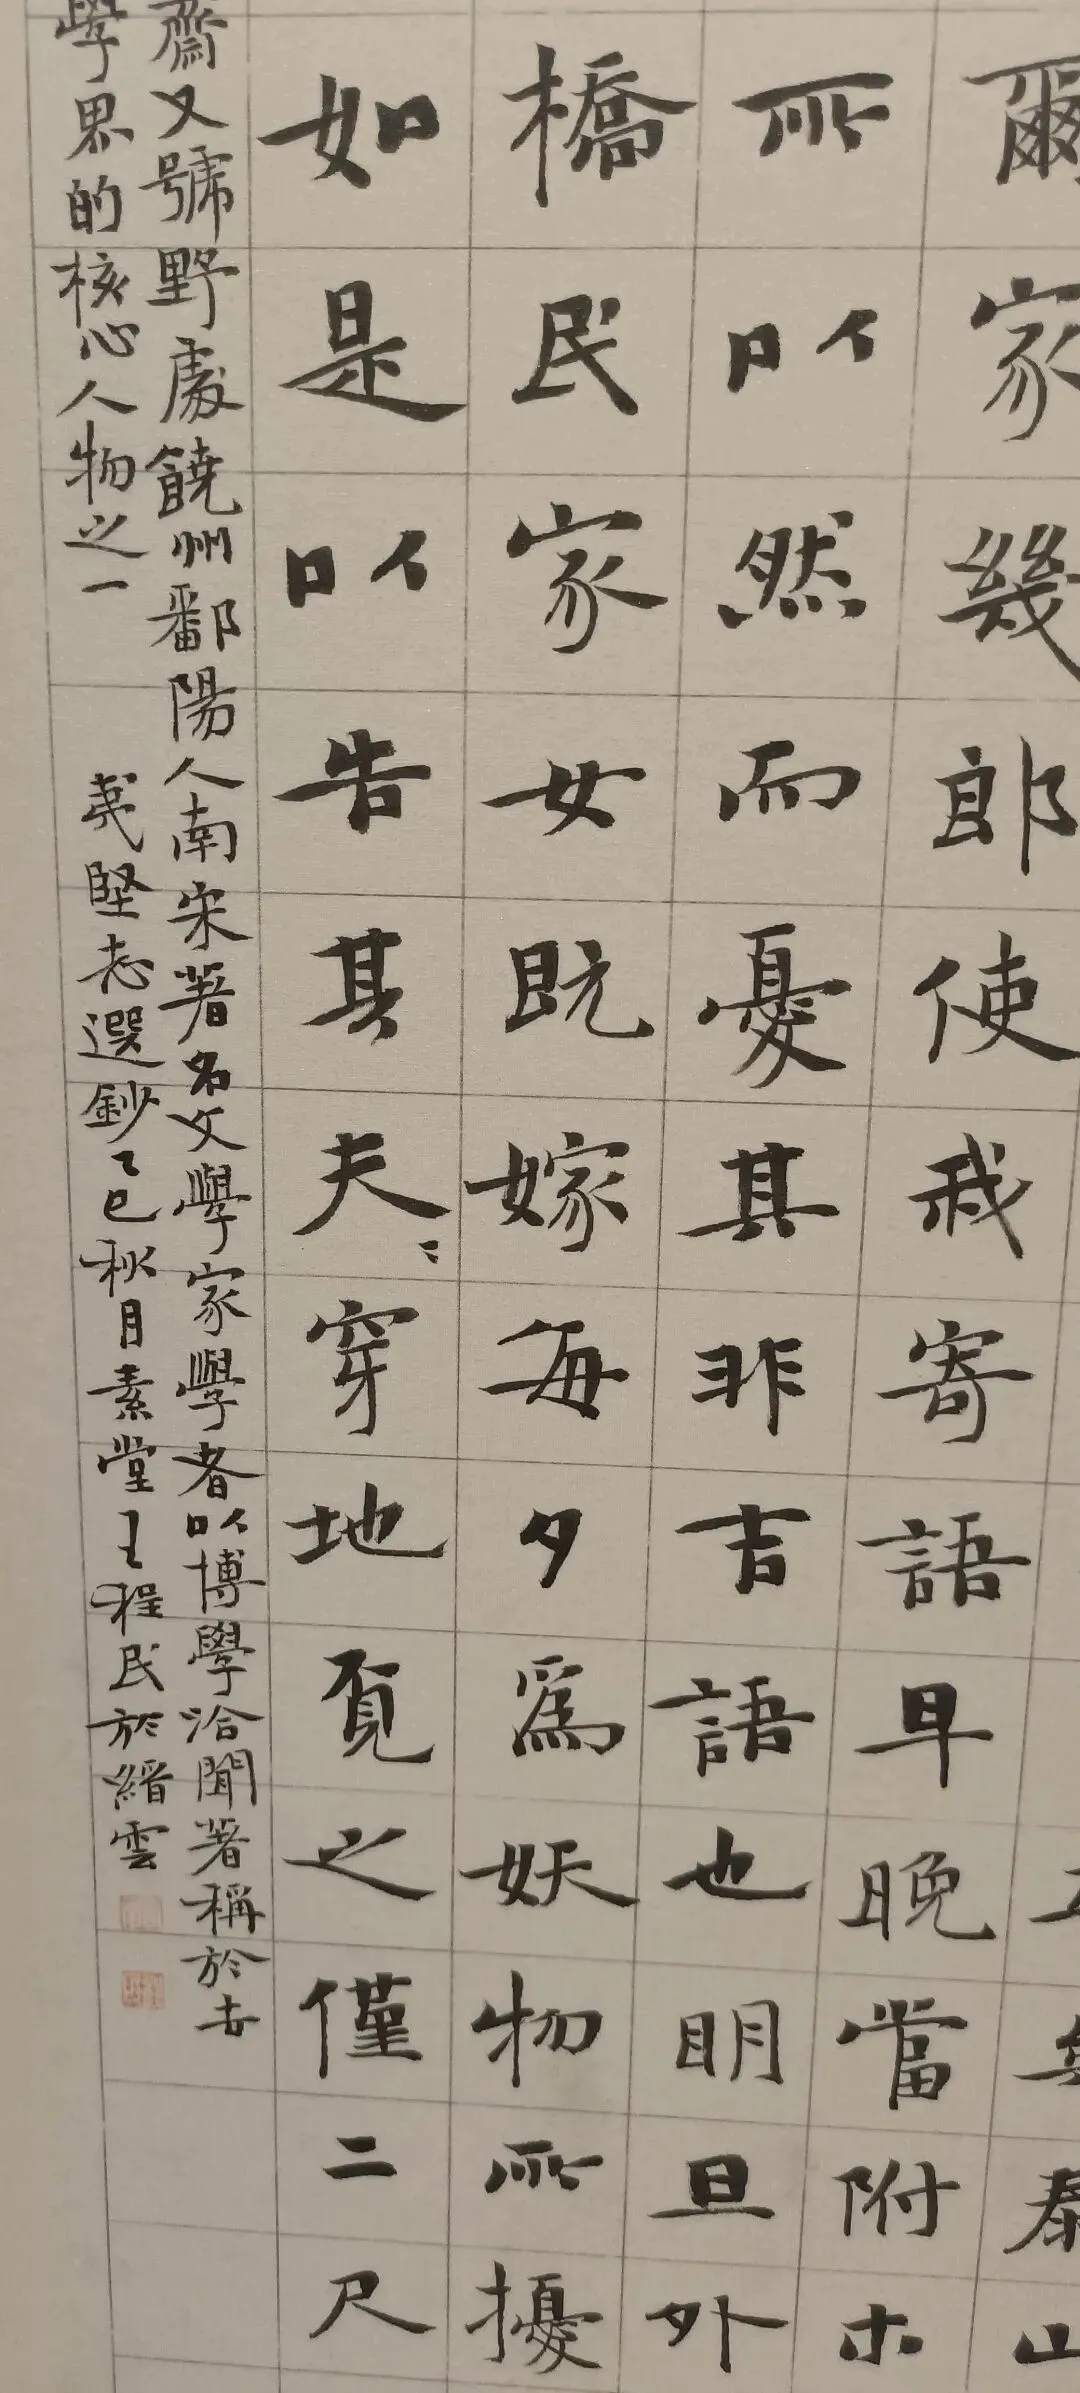 泰山
爾家幾郎使我寄語早晚當附木
所以然而憂其非吉語也明旦外
橋民家女既嫁每夕爲妖物所擾
如是以告其夫〻穿地覓之僅二尺
齋又號野處饒州鄱陽人南宋著名文學家學者以博學洽聞著稱於世
學界的核心人物之一 夷堅志選鈔乙巳秋月素堂王程民於縉雲